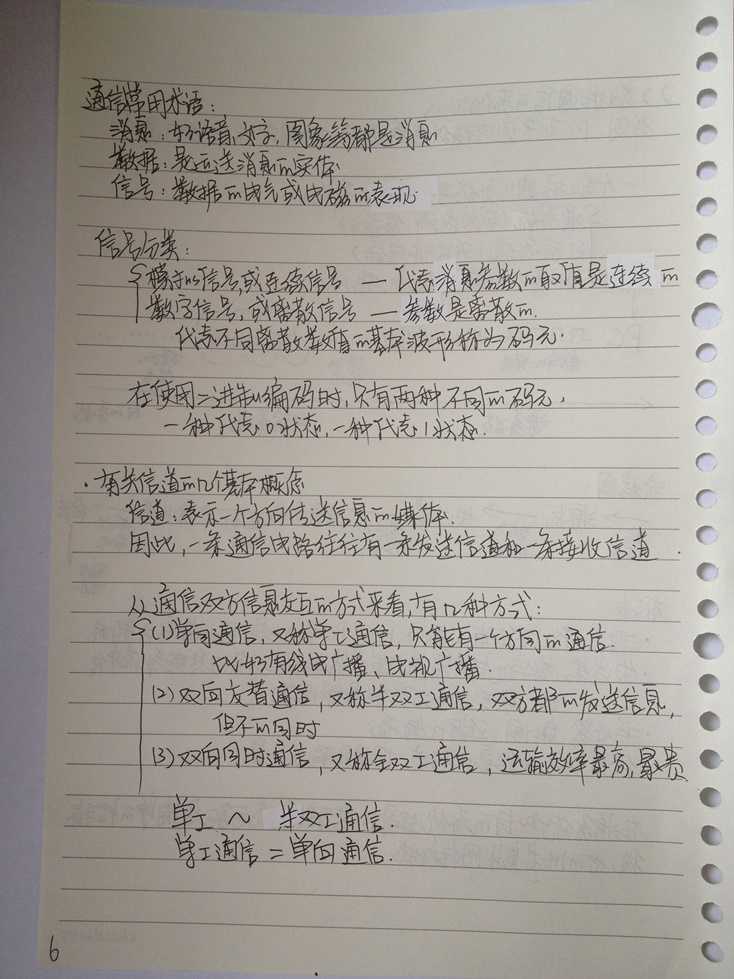 通信常用术语：
消息：如语音、文字、图象等都是消息
数据：是运送消息的实体
信号：数据的电气或电磁的表现
信号分类：
模拟信号，或连续信号 — 代表消息参数的取值是连续的
数字信号，或离散信号 — 参数是离散的.
代表不同离散数值的基本波形称为码元.
在使用二进制编码时，只有两种不同的码元，
一种代表0状态，一种代表1状态.
·有关信道的几个基本概念
信道：表示一个方向传送信息的媒体.
因此，一条通信电路往往有一条发送信道和一条接收信道.
从通信双方信息交互的方式来看，有几种方式：
(1)单向通信，又称单工通信，只能有一个方向的通信.
比如有线电广播、电视广播.
(2)双向交替通信，又称半双工通信，双方都可发送信息，
但不可同时
(3)双向同时通信，又称全双工通信，运输效率最高，最贵
单工 ～ 半双工通信.
单工通信 = 单向通信.
6